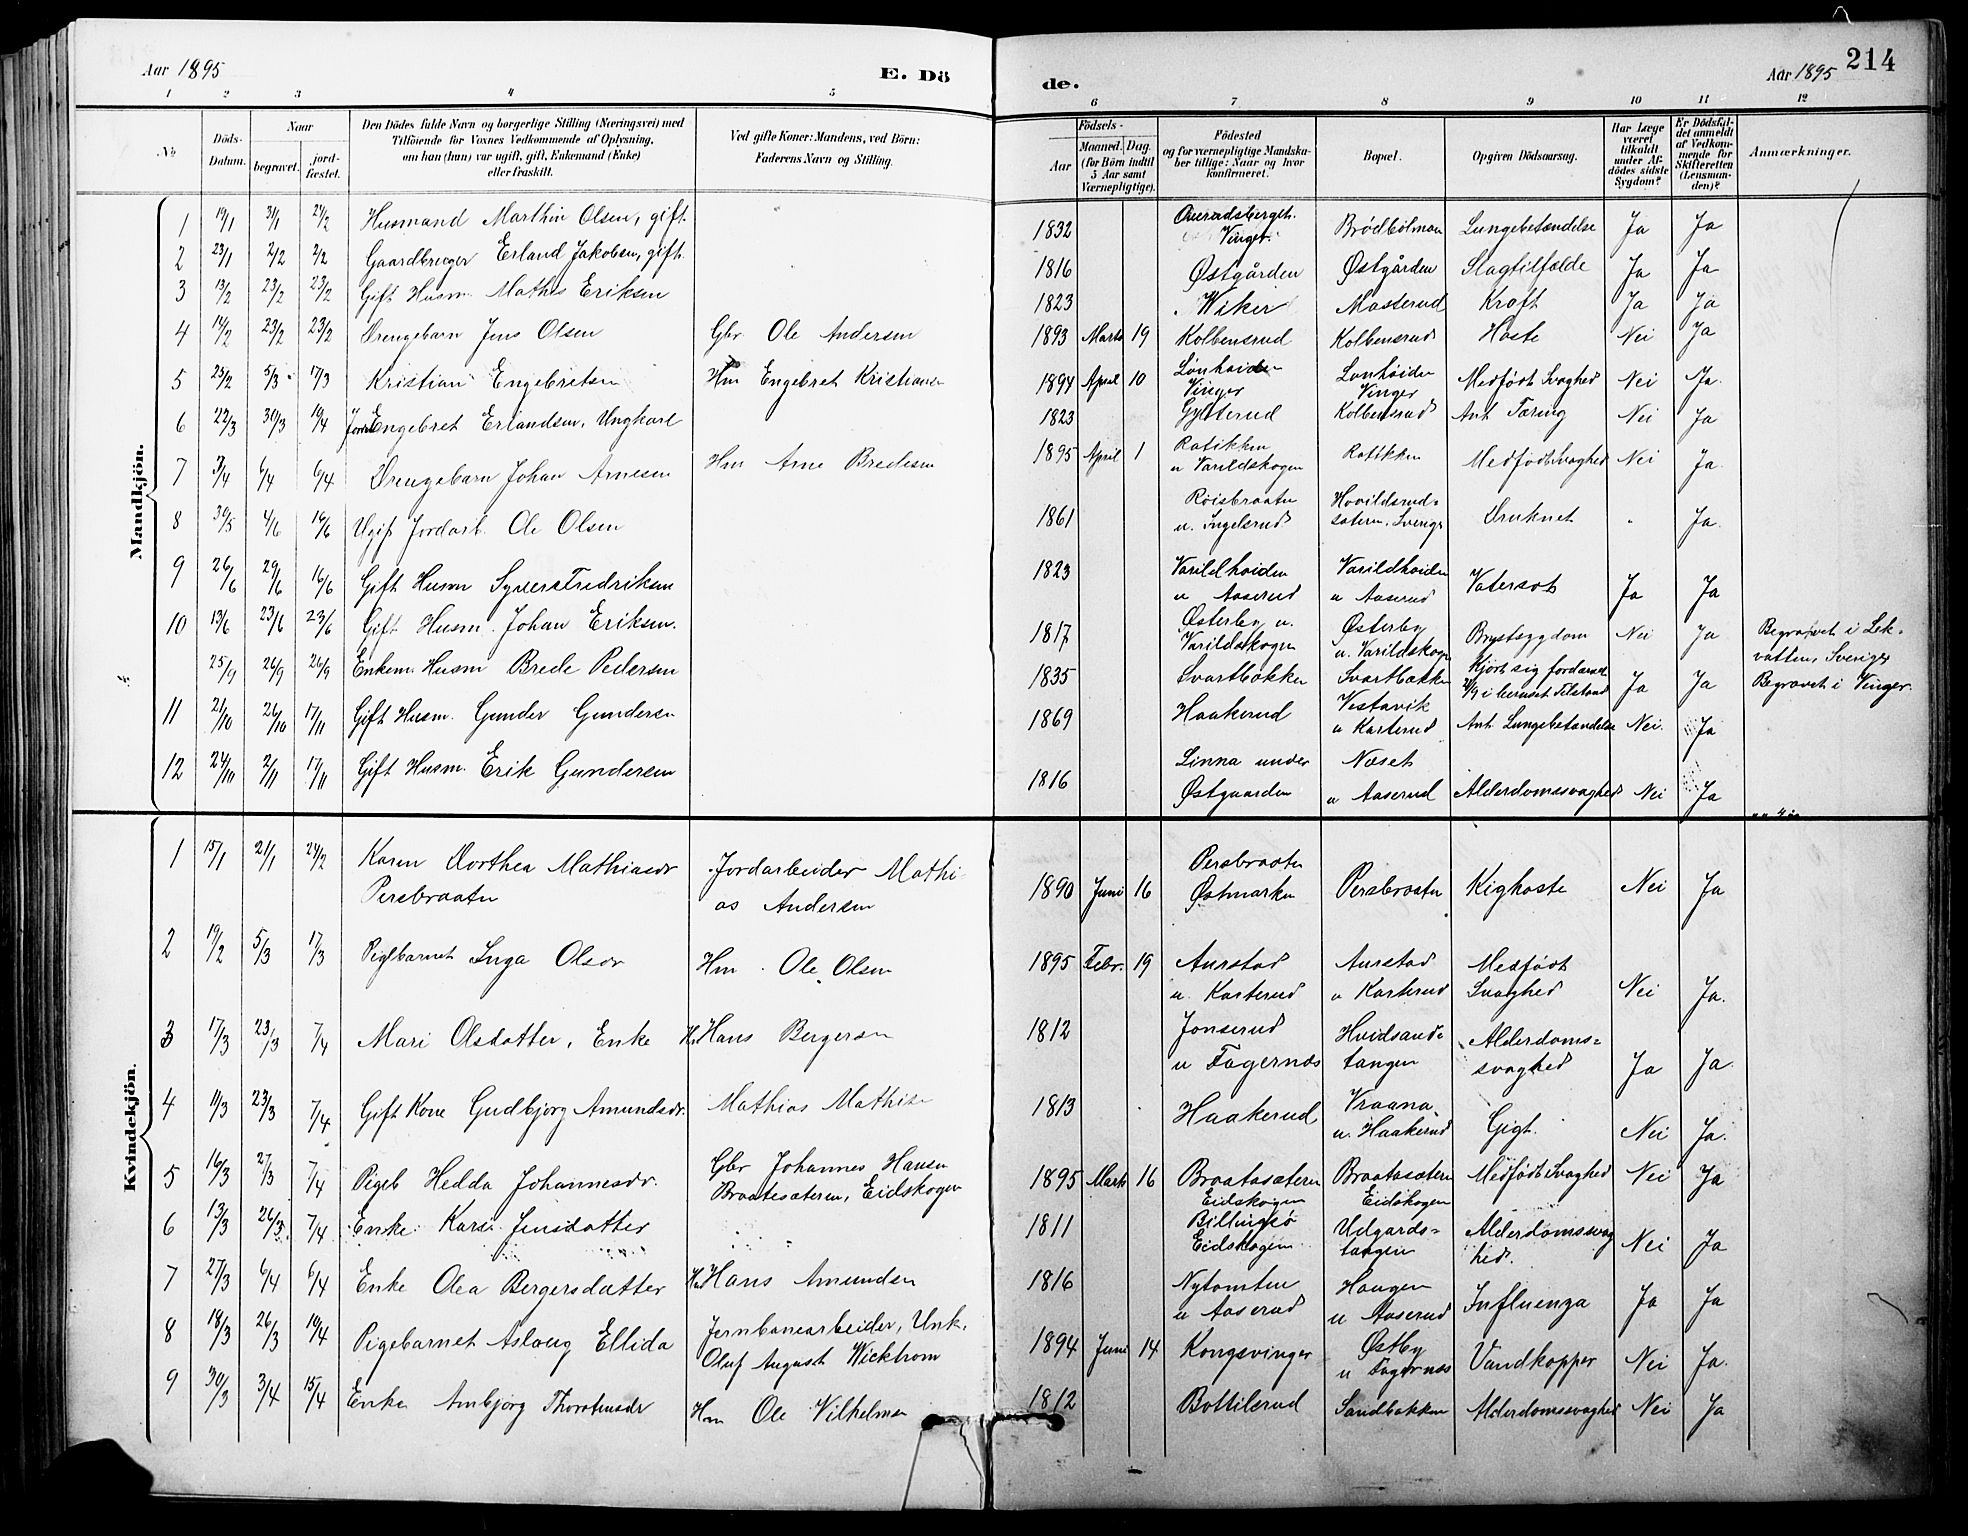 Aar 1895
E. Dö
de.
Aar 1895
214
1 2 3 4 5 6 7 8 9 10 11 12
No
Döds-Datum.
Naar
begravet.
jord-fæstet.
Den Dödes fulde Navn og borgerlige Stilling (Næringsvei) med
Tilföiende for Voxnes Vedkommende af Oplysning,
om han (hun) var ugift, gift, Enkemand (Enke)
eller fraskilt.
Ved gifte Koner: Mandens, ved Börn:
Faderens Navn og Stilling.
Födsels-
Aar
Maaned. Dag.
(for Börn indtil
5 Aar samt
Værnepligtige).
Födested
og for værnepligtige Mandska-
ber tillige: Naar og hvor
konfirmeret.
Bopæl.
Opgiven Dödsaarsag.
Har Læge
været
tilkaldt
under Af-
dödes sidste
Sygdom?
Er Dödsfal-
det anmeldt
af Vedkom-
mende for
Skifteretten
(Lensman-
den)?
Anmærkninger.
Mandkjön.
1 19/1 3/1 24/2 Husmand Marthin Olsen, gift. 1832 Vinger. Brödbölmoen Lungebetændelse Ja Ja
2 23/1 2/2 2/2 Gaardbruger Erland Jakobsen, gift. 1816 Østgården Østgården Slagtilfælde Ja Ja
3 13/2 23/2 23/2 Gift Husm. Mathis Eriksen 1823 Wiker Masterud Kræft Ja Ja
4 14/2 23/2 23/2 Drengebarn Jens Olsen Gbr Ole Andersen 1893 Marts 19 Kolbensrud Kolbensrud Hoste Nei Ja
5 25/2 5/3 17/3 Kristian Engebretsen Hm Engebret Kristiansen 1894 April 10 Lönhoiden Vinger Lönhöiden Vinger Medfödt Svaghed Nei Ja.
6 22/3 30/3 19/4 Engebret Erlandsen, Ungkarl 1823 Gylterud Kolbensrud Ant. Tæring Nei Ja
7 3/4 6/4 6/4 Drengebarn Johan Arnesen Hm Arne Bredesen 1895 April 1 Ratikken u Varildskogen Ratikken Medfödt Svaghed Nei Ja.
8 30/5 4/6 16/6 Ugift Jordarb. Ole Olsen 1861 Röisbraaten u. Ingelsrud Hovildsrud-sætern, Sverige Druknet " Ja.
9 26/6 29/6 16/6 Gift Husm Syver Fredriksen 1823 Varildhoiden u Aaserud Varildhoiden u Aaserud Vatersot Ja Ja
10 13/6 23/6 23/6 Gift Husm. Johan Eriksen. 1817 Østerby u. Varildskogen Østerby u. Varildskogen Brystsygdom Nei Ja Begravet i Lek-vatten, Sverige
25/9 26/9 26/9 Enkem. Husm Brede Pedersen 1835 Svartbækken Svartbækken Kjört sig fordærvet i beruset Tilstand Ja Ja Begravet i Vinger.
11 21/10 26/10 17/11 Gift Husm. Gunder Gundersen 1869 Haakerud Vestavik u Karterud Ant Lungebetændelse Nei. Ja
12 24/10 2/11 17/11 Gift Husm. Erik Gundersen 1816 Linna under Østgaarden Næset u Aaserud Alderdomssvaghed Nei Ja
Kvindekjön.
1 15/1 21/1 24/2 Karen Dorthea Mathiasdr Persbraaten Jordarbeider Mathi-as Andersen 1890 Juni 16 Persbraaten Østmarken Persbraaten Kighoste Nei Ja
2 19/2 5/3 17/3 Pigebarnet Inga Olsdr Hm. Ole Olsen 1895 Febr. 19 Aurstad u. Karterud Aurstad u Karterud Medfödt Svaghed Nei Ja.
3 17/3 23/3 7/4 Mari Olsdatter, Enke Hm Hans Bergersen 1812 Jonserud u Fagernæs Hvidsand-tangen Alderdoms-svaghed Ja Ja.
4 11/3 23/3 7/4 Gift Kone Gudbjörg Amundsdr. Mathias Mathisen 1813 Haakerud Vraana u. Haakerud Gigt. Nei Ja.
5 16/3 27/3 7/4 Pigeb Hedda Johannesdr. Gbr Johannes Hansen Braatesæteren, Eidskogen 1895 Marts 16 Braatasæteren Eidskogen Braatasæteren Eidskogen Medfödt Svaghed Nei Ja
6 13/3 26/3 7/4 Enke Kari Jensdatter 1811 Billingsö Eidskogen Udgards-tangen Alderdomssvag-hed. Nei Ja
7 27/3 6/4 6/4 Enke Olea Bergersdatter Hm Hans Amundsen 1816 Nytomten u Aaserud Haugen u Aaserud Influenza Ja Ja
8 18/3 26/3 19/4 Pigebarnet Aslaug Ellida Jernbanearbeider, Unk. Oluf August Wickstrom 1894 Juni 14 Kongsvinger Østby u Fagernæs Vandkopper Nei Ja.
9 30/3 3/4 15/4 Enke Ambjörg Thorstensdr Hm Ole Vilhelmsen 1812 Bottilsrud Sandbakken Alderdomssvaghed Nei Ja